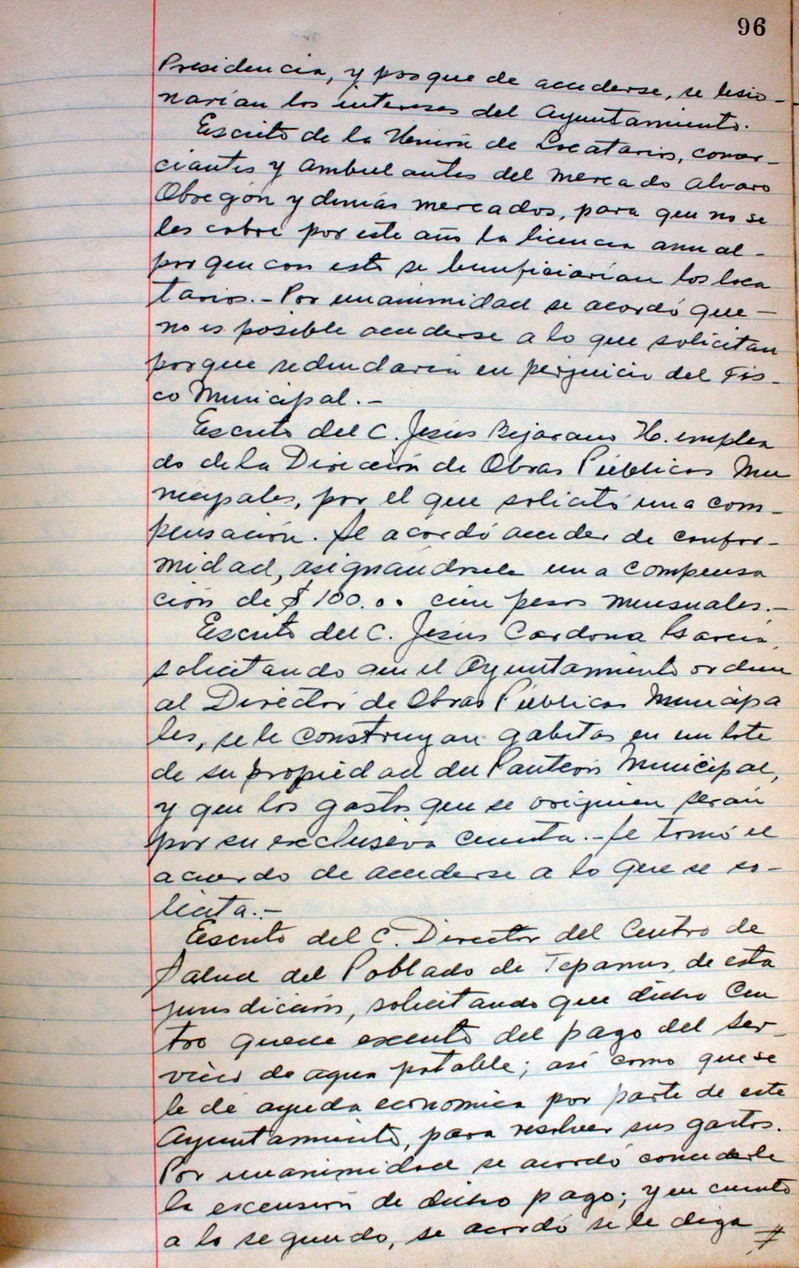 96
Presidencia, y porque de accederse, se lesio-
narían los intereses del Ayuntamiento.
Escrito de la Unión de Locatarios, comer-
ciantes y ambulantes del mercado Alvaro
Obregón y demás mercados, para que no se
les cobre por este año la licencia anual-
porque con esto se beneficiarían los loca
tarios.- Por unanimidad se acordó que-
no es posible accederse a lo que solicitan
porque redundaría en perjuicio del Fis-
co Municipal.-
Escrito del C. Jesús Bejarano H. emplea
do de la Dirección de Obras Públicas Mu
nicipales, por el que solicitó una com-
pensación. Se acordó acceder de confor-
midad, asignándosele una compensa
ción de $100.00 cien pesos mensuales.-
Escrito del C. Jesús Cardona García,
solicitando que el Ayuntamiento ordene
al Director de Obras Públicas Municipa
les, se le construyan gabetas en un lote
de su propiedad del Panteón Municipal,
y que los gastos que se originen serán
por su exclusiva cuenta.- Se tomó el
acuerdo de accederse a lo que se so-
licita.-
Escrito del C. Director del Centro de
Salud del Poblado de Tepames, de esta
jurisdicción, solicitando que dicho Cen
tro quede excento del pago del ser-
vicio de agua potable; así como que se
le dé ayuda economica por parte de este
Ayuntamiento, para resolver sus gastos.
Por unanimidad se acordó concederle
la excensión de dicho pago; y en cuanto
a lo segundo, se acordó se le diga